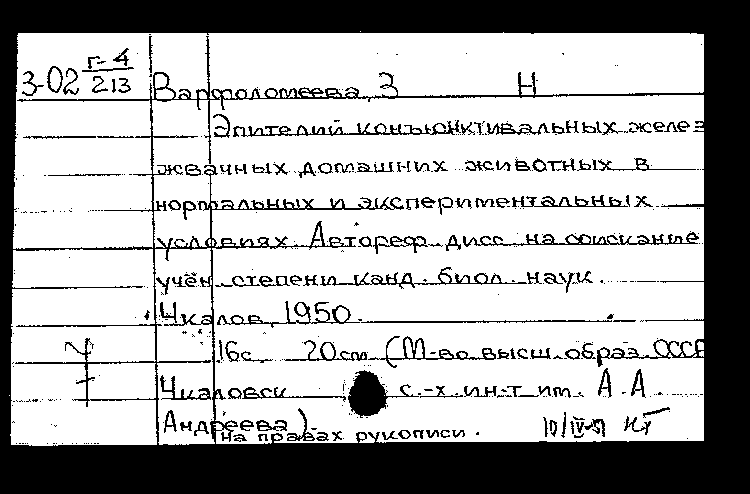 3-02 Г-4/213 Варфоломеева, З Н
Эпителий конъюнктивальных желез
жвачных домашних животных в
нормальных и экспериментальных
условиях. Автореф. дисс. на соискание
учён. степени канд. биол. наук.
Чкалов, 1950.
16с. 20см (М-во высш. образ. СССР
Чкаловск с.-х. ин-т им. А.А.
Андреева).
на правах рукописи.
10/IV-51